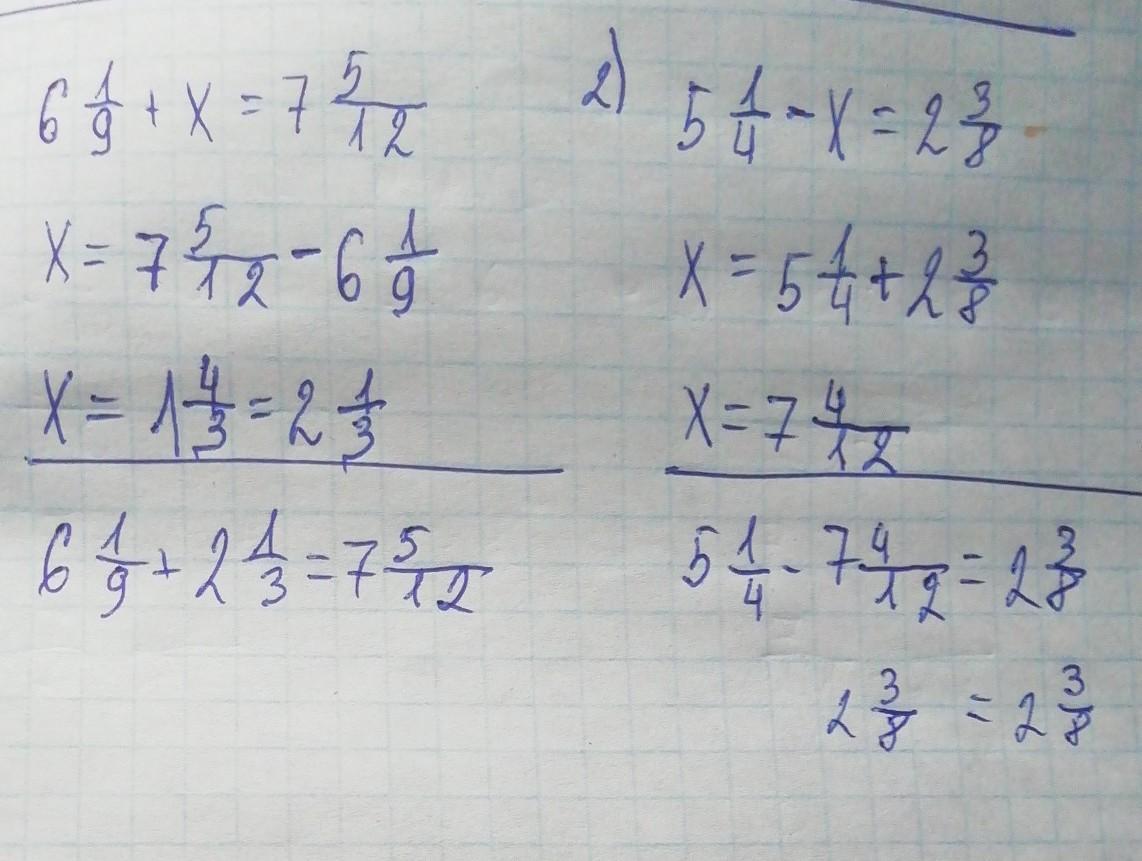 6 1/9 + x = 7 5/12
x = 7 5/12 - 6 1/9
x = 1 4/3 = 2 1/3
6 1/9 + 2 1/3 = 7 5/12
2) 5 1/4 - x = 2 3/8
x = 5 1/4 + 2 3/8
x = 7 4/12
5 1/4 - 7 4/12 = 2 3/8
2 3/8 = 2 3/8